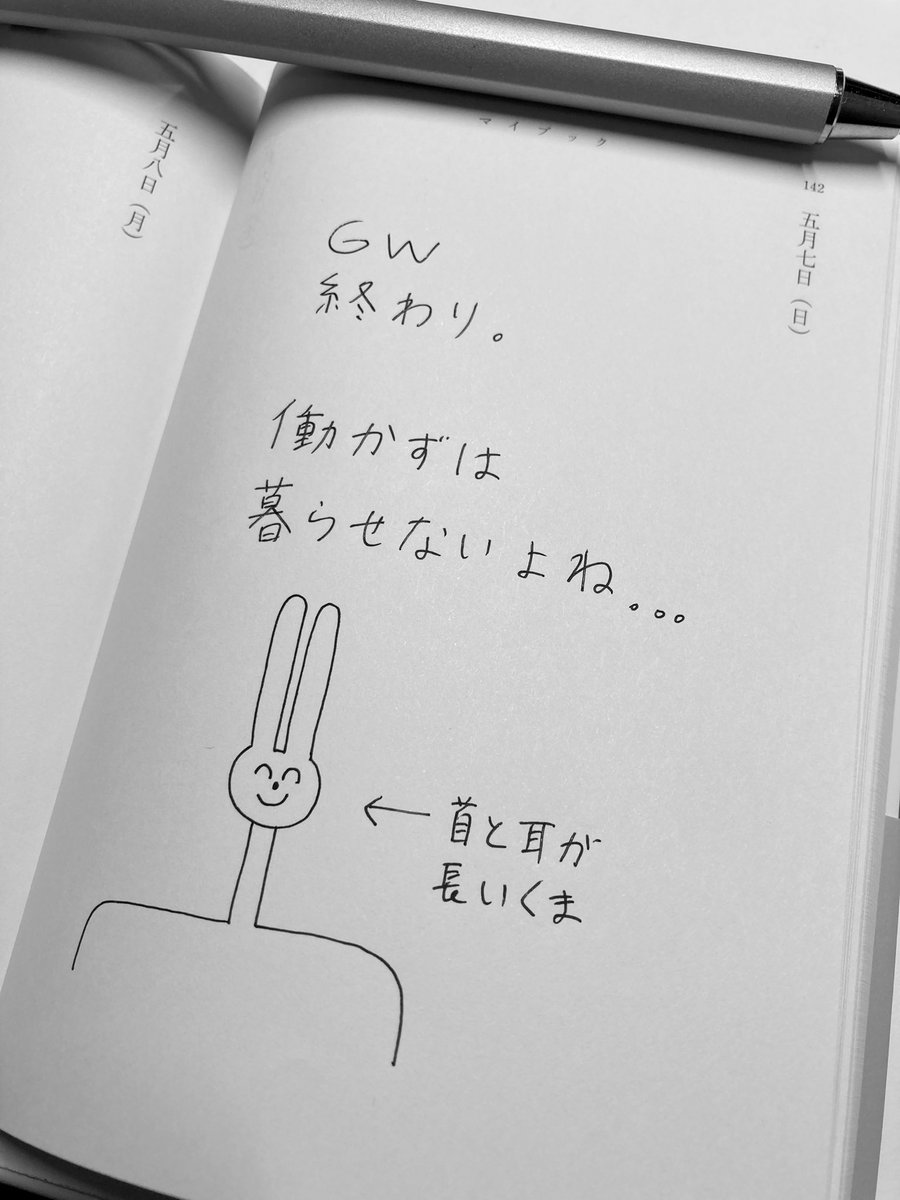 マイブック
142
五月七日（日）
GW
終わり。
働かずは
暮らせないよね...
←首と耳が
長いくま
五月八日（月）